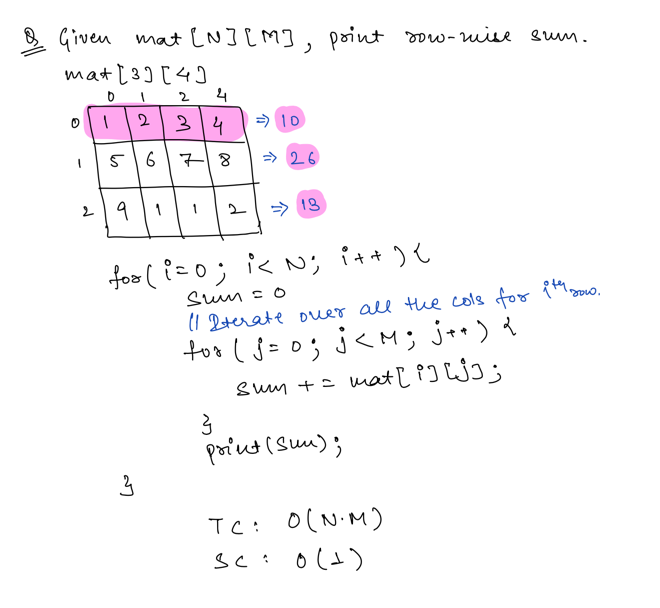 Q Given mat[N][M], print row-wise sum.
mat[3][4]
0 1 2 4
0 1 2 3 4 => 10
1 5 6 7 8 => 26
2 9 1 1 2 => 13
for(i=0; i<N; i++){
sum = 0
// Iterate over all the cols for ith row.
for(j=0; j<M; j++){
sum += mat[i][j];
}
print(sum);
}
TC: O(N·M)
SC: O(1)